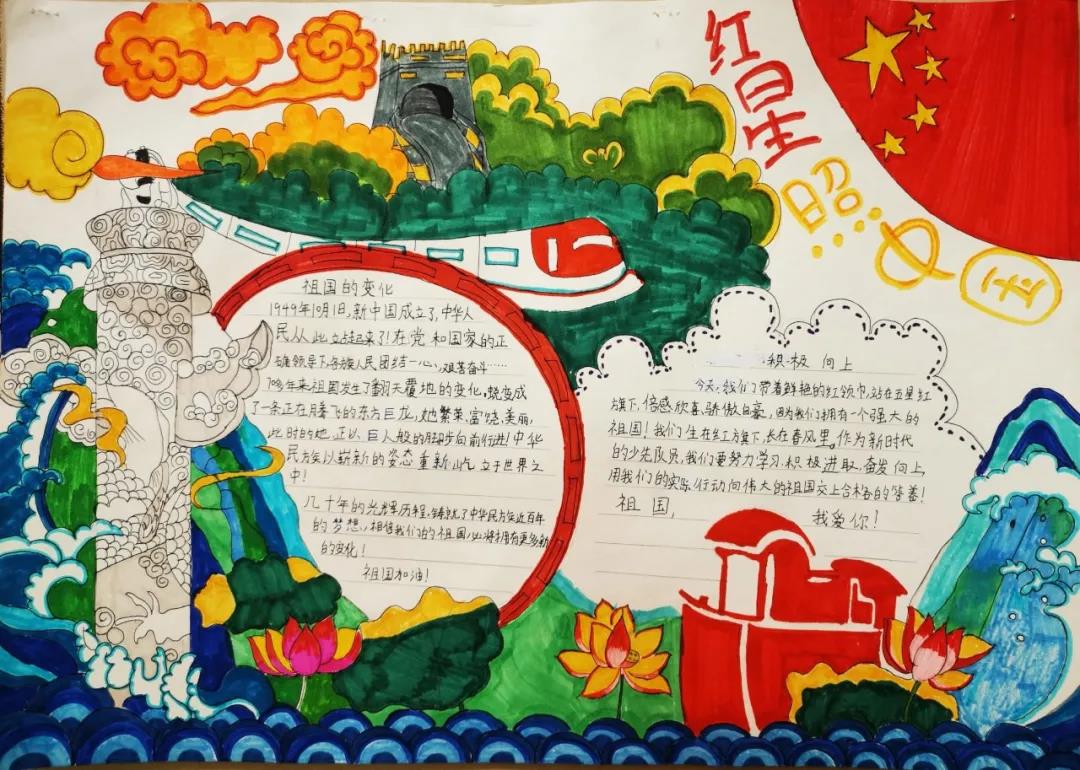 红星照中国
祖国的变化
1949年10月1日,新中国成立了,中华人
民从此立起来了!在党和国家的正
确领导下,各族人民团结一心,艰苦奋斗……
70年来祖国发生了翻天覆地的变化,蜕变成
了一条正在腾飞的东方巨龙,她繁荣,富饶,美丽,
此时的她,正以巨人般的脚步向前行进!中华
民族以崭新的姿态重新屹立于世界之
中!
几十年的光辉历程,铸就了中华民族近百年
的梦想,相信我们的祖国必将拥有更多新
的变化!
祖国加油!
积极向上
今天,我们带着鲜艳的红领巾,站在五星红
旗下,倍感欣喜,骄傲自豪,因为我们拥有一个强大的
祖国!我们生在红方旗下,长在春风里。作为新时代
的少先队员,我们要努力学习,积极进取,奋发向上,
用我们的实际行动向伟大的祖国交上合格的答案!
祖国,我爱你!